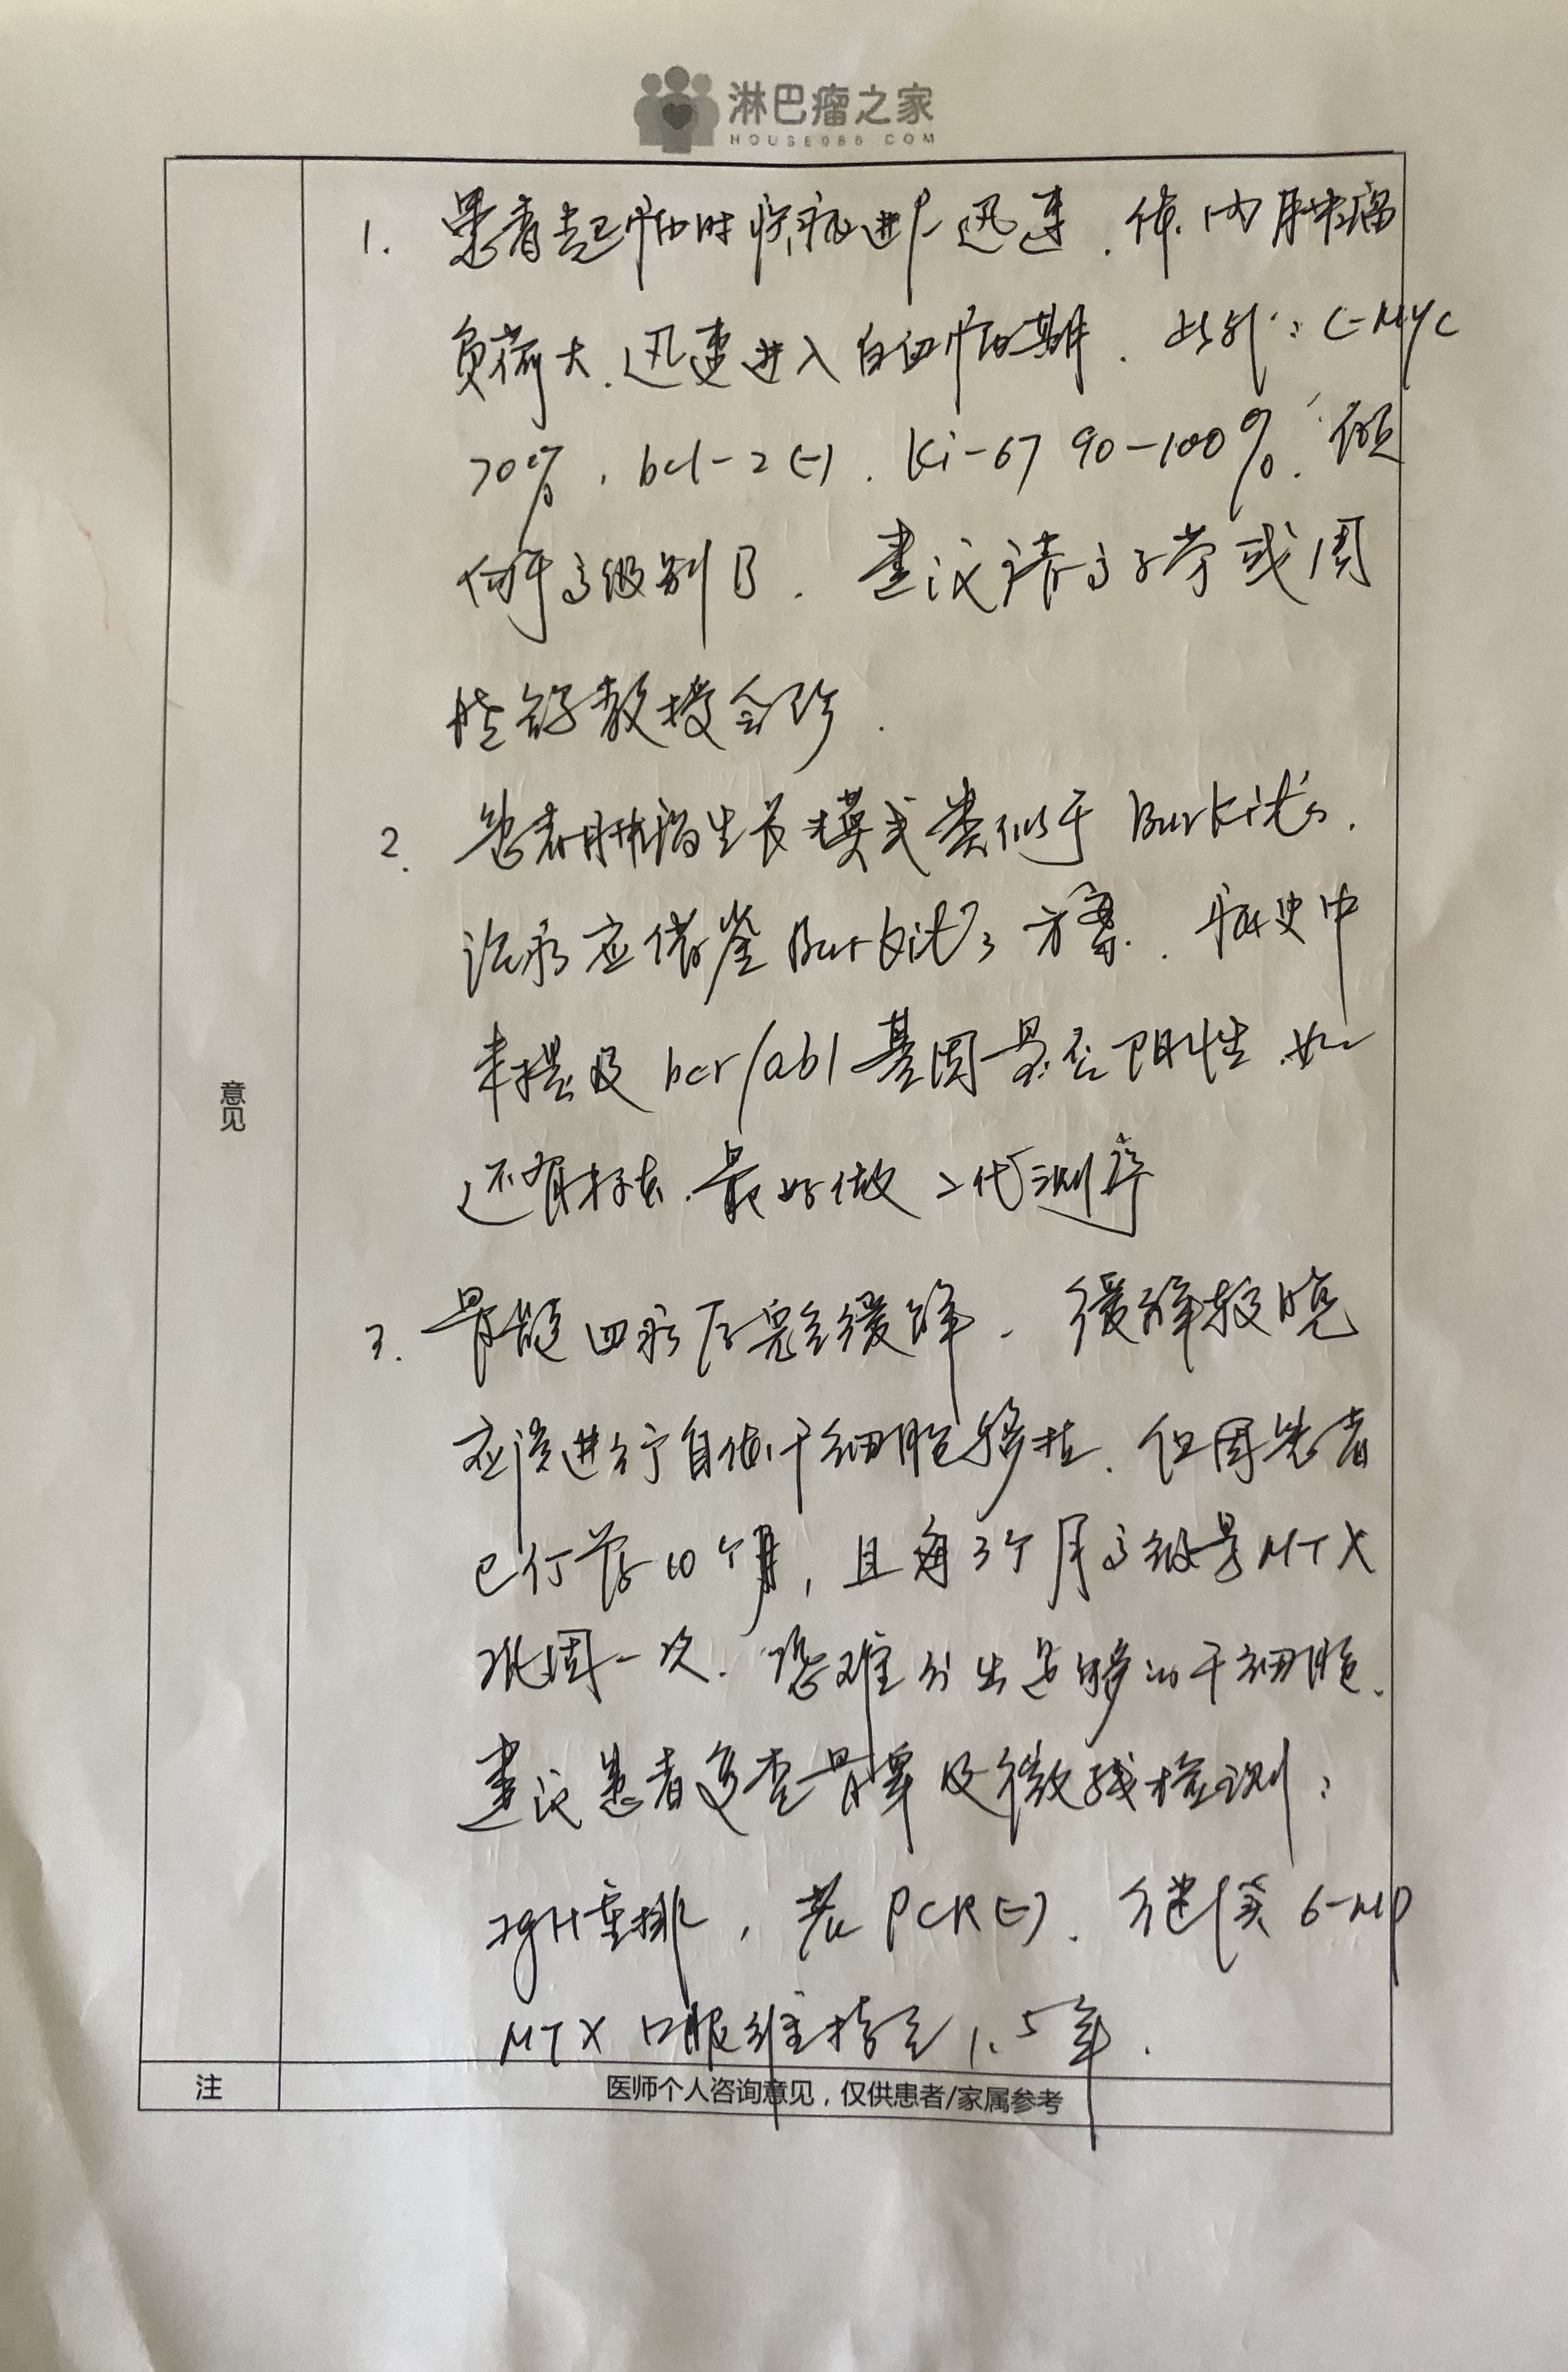 淋巴瘤之家
HOUSE086.COM
意见
1. 患者起病时疾病进户迅速.体内肿瘤
负荷大.迅速进入白血病期.此外:C-MYC
70%,bcl-2(-).Ki-67 90-100%.倾
向于高级别B.建议请高子芬或周
教授会诊.
2. 患者肿瘤生长模式类似于Burkit's.
治疗应借鉴Burkit's方案.病史中
未提及bcr/abl基因是否阴性.如
还有标本.最好做二代测序
3. 骨髓四疗后完全缓解.缓解较晚
应该进行自体干细胞移植.但因患者
已停药10个月,且每3个月高剂量MTX
巩固一次.恐难分出足够的干细胞.
建议患者复查骨穿及微残检测:
IgH重排,若PCR(-).继续6-MP
MTX口服维持至1.5年.
注
医师个人咨询意见,仅供患者/家属参考